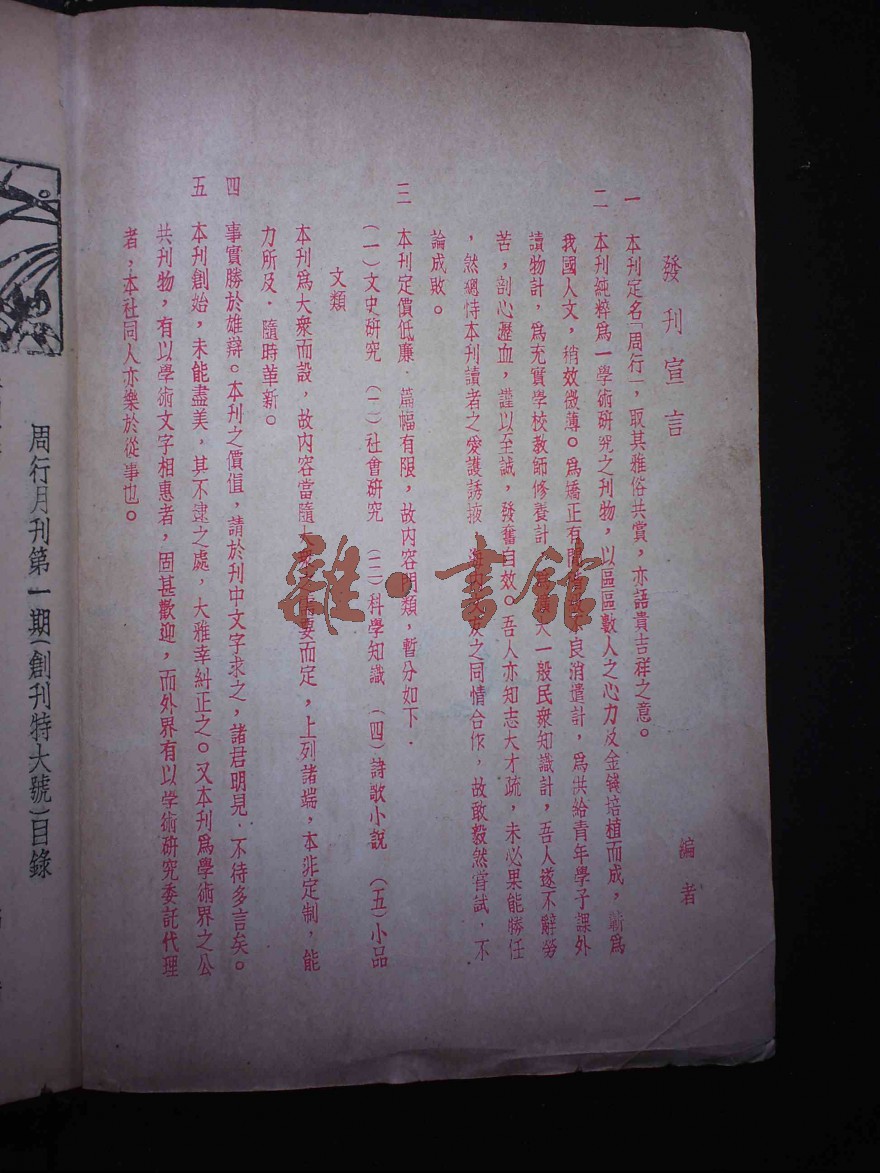 發刊宣言
編者
一 本刊定名「周行」，取其雅俗共賞，亦語貴吉祥之意。
二 本刊純粹為一學術研究之刊物，以區區數人之心力及金錢培植而成，蘄為
我國人文，稍效微薄。為矯正有閒 不良消遣計，為供給青年學子課外
讀物計，為充實學校教師修養計， 一般民衆知識計，吾人遂不辭勞
苦，剖心瀝血，謹以至誠，發奮自效。吾人亦知志大才疏，未必果能勝任
，然總恃本刊讀者之愛護誘掖 海內 之同情合作，故敢毅然嘗試，不
論成敗。
三 本刊定價低廉．篇幅有限，故內容門類，暫分如下．
（一）文史研究 （二）社會研究 （三）科學知識 （四）詩歌小說 （五）小品
文類
本刊爲大衆而設，故內容當隨大衆 需要而定，上列諸端，本非定制，能
力所及．隨時革新。
四 事實勝於雄辯。本刊之價值，請於刊中文字求之，諸君明見．不待多言矣。
五 本刊創始，未能盡美，其不逮之處，大雅幸糾正之。又本刊爲學術界之公
共刊物，有以學術文字相惠者，固甚歡迎，而外界有以學術研究委託代理
者，本社同人亦樂於從事也。
周行月刊第一期（創刊特大號）目錄
雜·書館